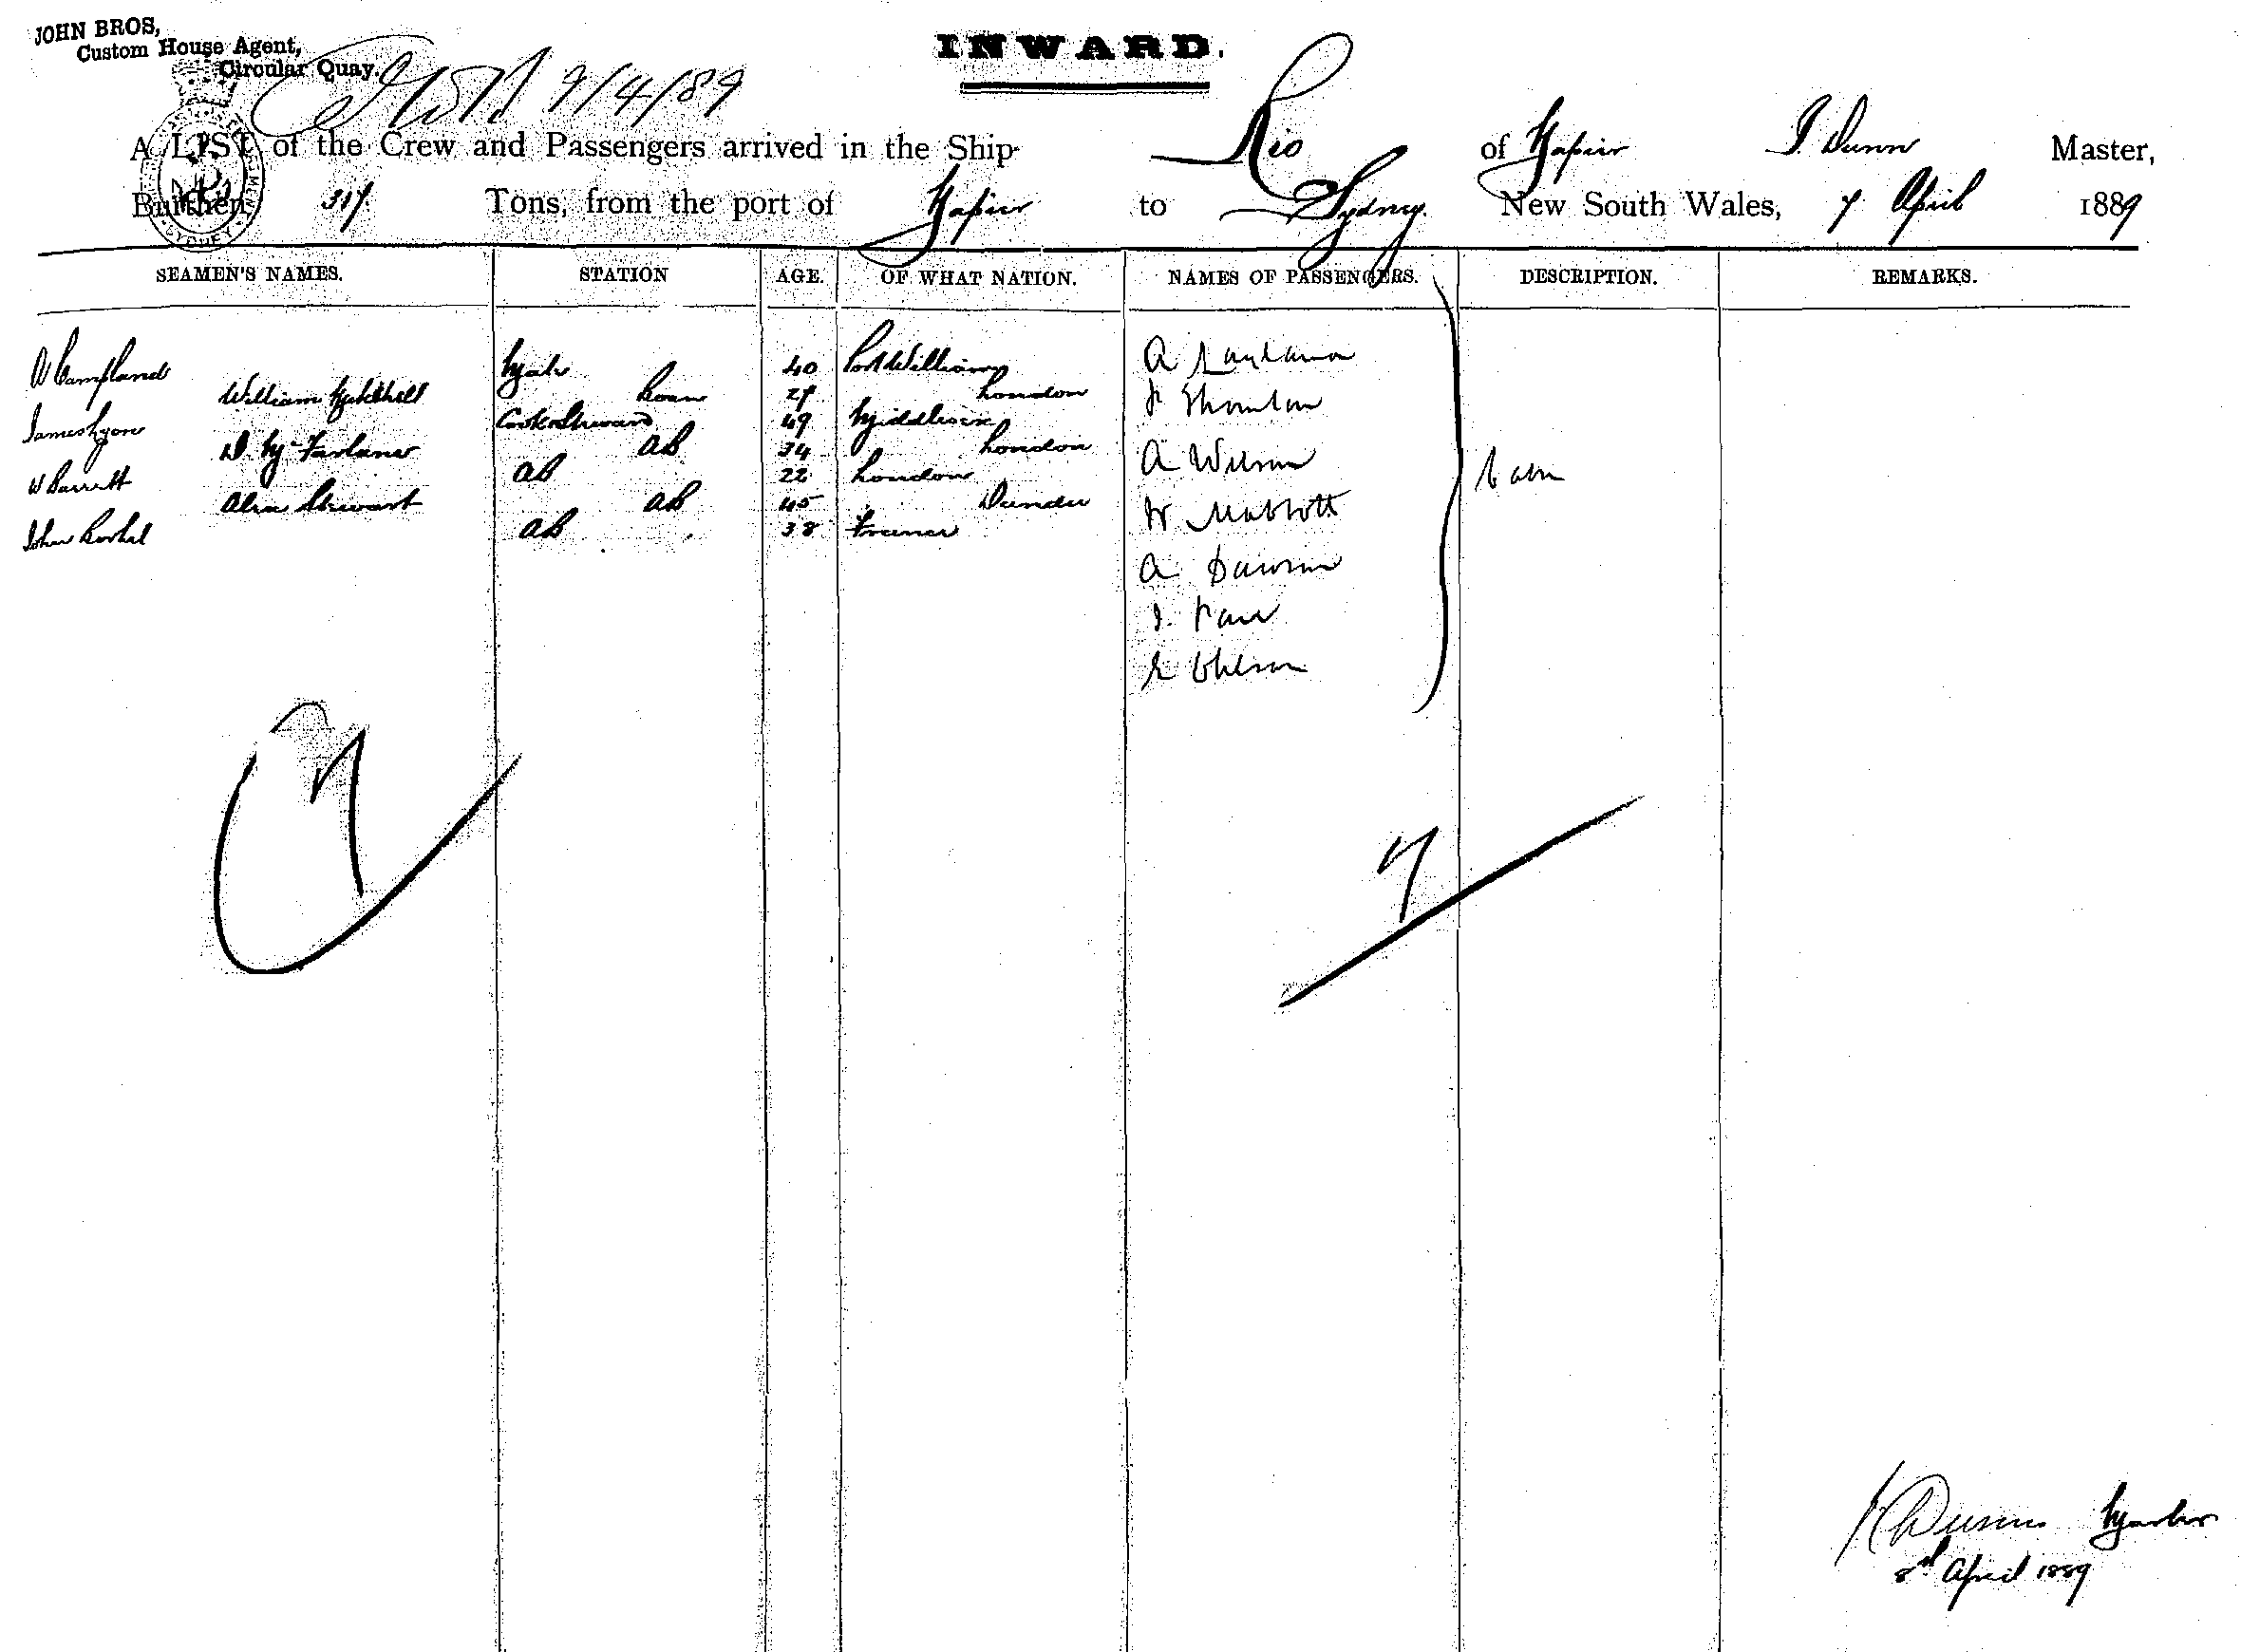 JOHN BROS,
Custom House Agent,
Circular Quay.
9/4/89
INWARD.
A LIST of the Crew and Passengers arrived in the Ship Rio of Napier J. Dunn Master,
Burthen 317 Tons, from the port of Napier to Sydney New South Wales, 7 April 1889
SEAMEN'S NAMES. STATION AGE. OF WHAT NATION. NAMES OF PASSENGERS. DESCRIPTION. REMARKS.
Mate 40 Port William A
William Bosun 27 London Thornton
James Lyons Cook & Steward 49 Middlesex A Wilson
D. Mc Farlane AB 34 London W
W Barrett AB 22 London A Dawson
Alex Stewart AB 45 Dundee J.
John AB 38 France Ohlson
Cabin
7
7
Dunn Master
8th April 1889